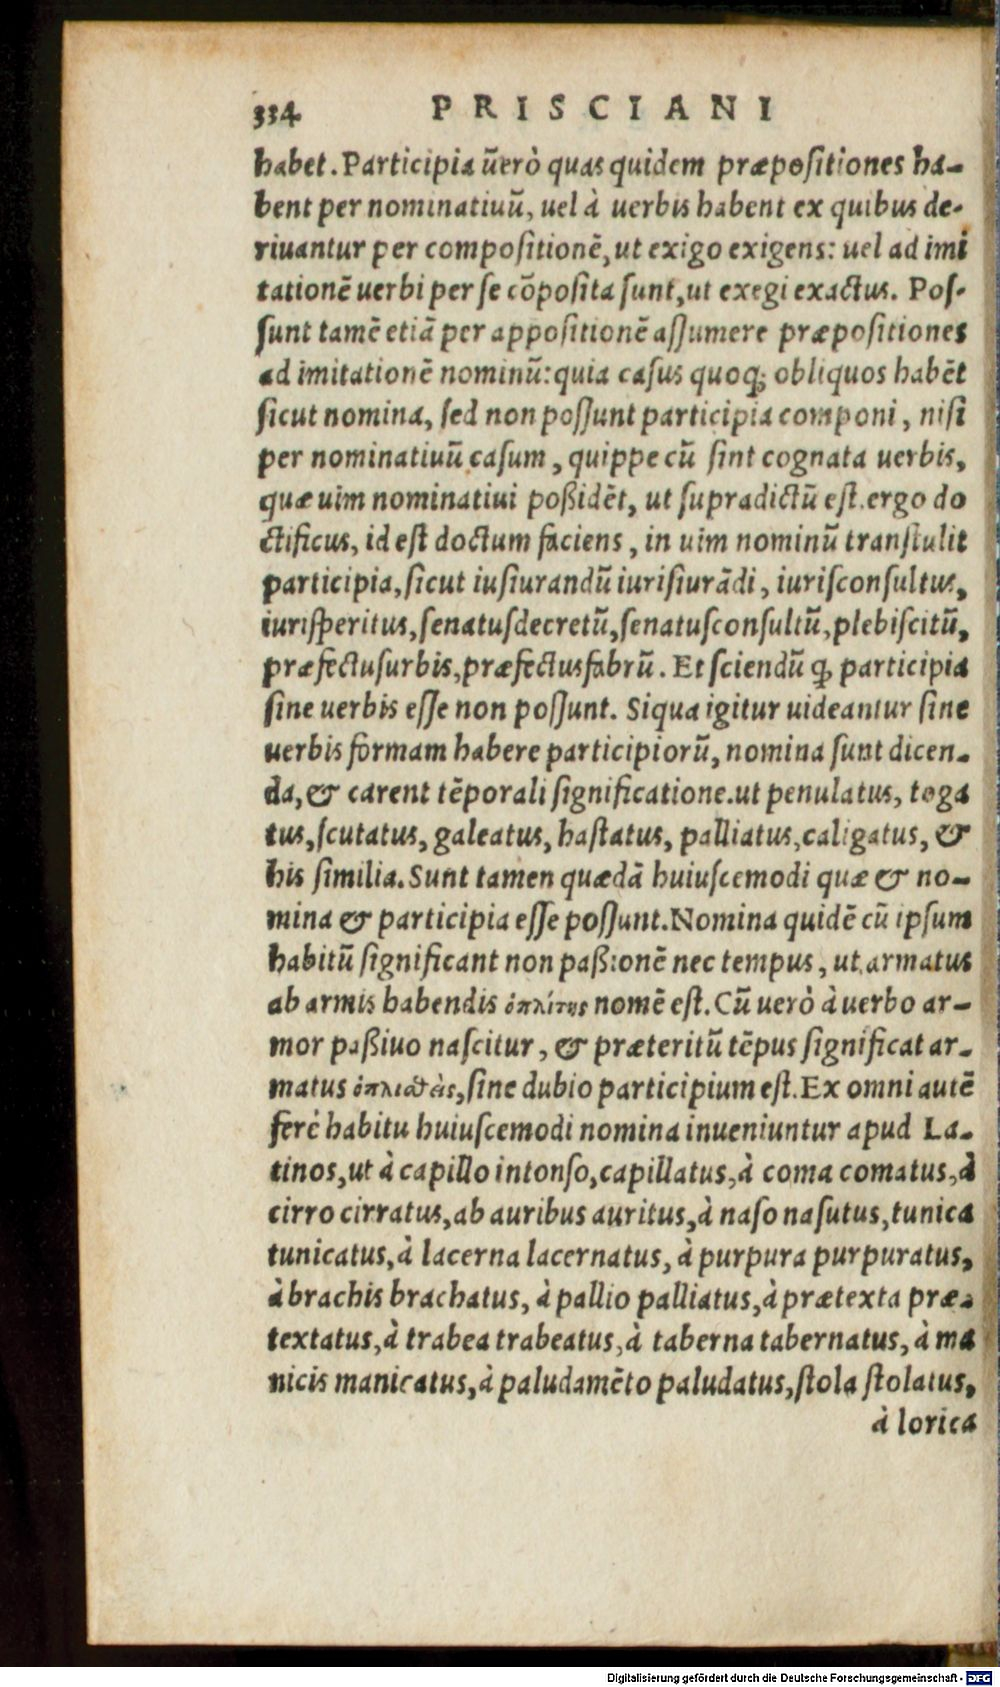 334 PRISCIANI
habet. Participia ũerò quas quidem præpositiones ha-
bent per nominatiuũ, uel à uerbis habent ex quibus de-
riuantur per compositionẽ, ut exigo exigens: uel ad imi
tationẽ uerbi per se cõposita sunt, ut exegi exactus. Pos-
sunt tamẽ etiã per appositionẽ assumere præpositiones
ad imitationẽ nominũ: quia casus quoq; obliquos habẽt
sicut nomina, sed non possunt participia componi, nisi
per nominatiuũ casum, quippe cũ sint cognata uerbis,
quæ uim nominatiui poßidẽt, ut supradictũ est. ergo do
ctificus, id est doctum faciens, in uim nominũ transtulit
participia, sicut iusiurandũ iurisiurãdi, iurisconsultus,
iurisperitus, senatusdecretũ, senatusconsultũ, plebiscitũ,
præfectusurbis, præfectusfabrũ. Et sciendũ ꝙ participia
sine uerbis esse non possunt. Siqua igitur uideantur sine
uerbis formam habere participiorũ, nomina sunt dicen-
da, & carent tẽporali significatione. ut penulatus, toga
tus, scutatus, galeatus, hastatus, palliatus, caligatus, &
his similia. Sunt tamen quædã huiuscemodi quæ & no-
mina & participia esse possunt. Nomina quidẽ cũ ipsum
habitũ significant non paßionẽ nec tempus, ut armatus
ab armis habendis ὁπλίτης nomẽ est. Cũ uerò à uerbo ar-
mor paßiuo nascitur, & præteritũ tẽpus significat ar-
matus ὁπλισθεὶς, sine dubio participium est. Ex omni autẽ
ferè habitu huiuscemodi nomina inueniuntur apud La-
tinos, ut à capillo intonso, capillatus, à coma comatus, à
cirro cirratus, ab auribus auritus, à naso nasutus, tunica
tunicatus, à lacerna lacernatus, à purpura purpuratus,
à brachis brachatus, à pallio palliatus, à prætexta præ-
textatus, à trabea trabeatus, à taberna tabernatus, à ma
nicis manicatus, à paludamẽto paludatus, stola stolatus,
à lorica
Digitalisierung gefördert durch die Deutsche Forschungsgemeinschaft - DFG